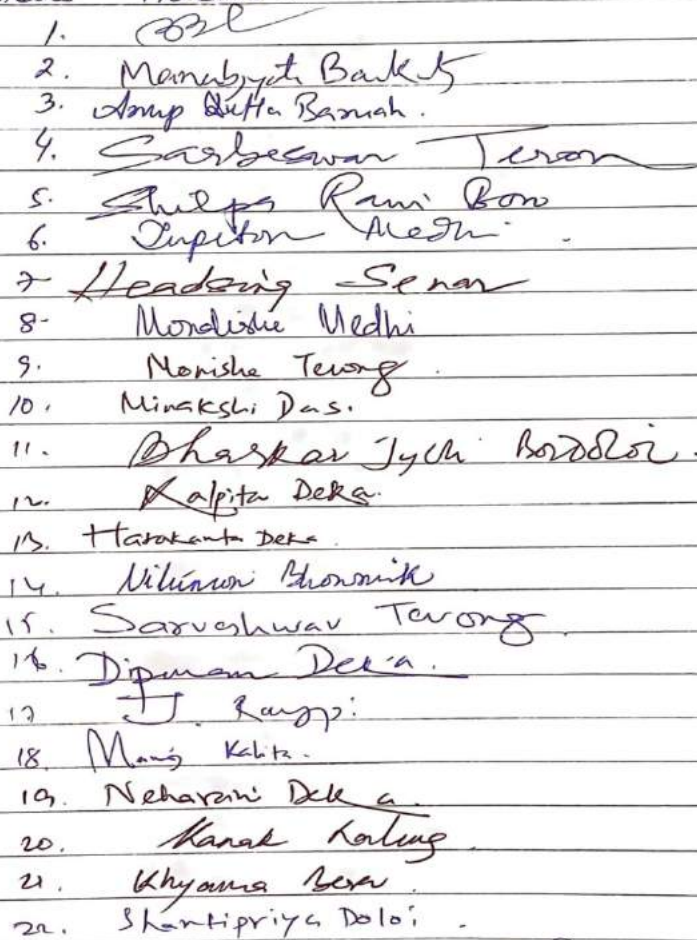 1.
2. Manabjyoti
3. Anup Dutta Baruah.
4. Sarbeswar Teron
5. Shilpa Rani Boro
6. Jupiton Medhi.
7 Headsing Senar
8- Mondisha Medhi
9. Monisha Terong.
10. Minakshi Das.
11. Bhaskar Jyoti Bordoloi.
12. Kalpita Deka.
13. Harakanta Deka.
14. Bhowmik
15. Sarveshwar Terong.
16. Dipmani Deka.
17 J. Rongpi
18. Manoj Kalita.
19. Neharani Deka.
20. Kanak
21. Khyanna
22. Shantipriya Doloi.